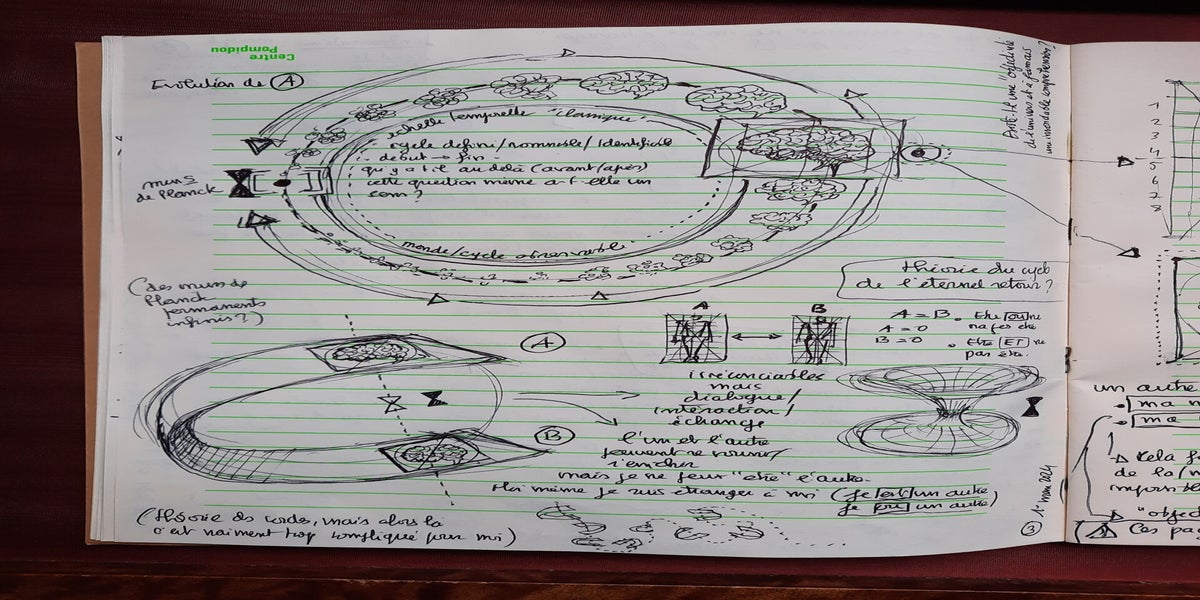 Centre
Pompidou
Evolution de A
échelle temporelle "classique"
cycle défini/nommable/identifiable
début → fin
qu'y a t-il au delà (avant/après)
cette question même a-t-elle un
sens ?
monde/cycle observable
murs
de Planck
(des murs de
Planck
permanents
infinis ?)
Peut-il une "objectivité
de l'univers est à jamais
inabordable compréhension ?
théorie du cycle
de l'éternel retour ?
A
B
A = B
A = 0
B = 0
. Etre ou ne
pas être
. Etre ET ne
pas être.
A
B
irréconciliables
mais
dialogue/
intéraction/
échange
l'un et l'autre
peuvent se nourrir/
s'enrichir
mais je ne peux "être" l'autre.
Moi même je suis étranger à moi (Je est un autre)
Je ou un autre)
(théorie des cordes, mais alors là
c'est vraiment trop compliqué pour moi)
3
1
2
3
4
5
6
7
8
un autre
ma
me
de la
"object